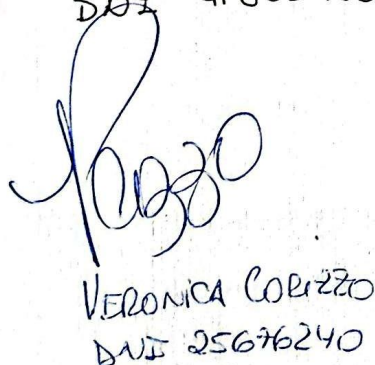 DNI
VERONICA CORIZZO
DNI 25676240